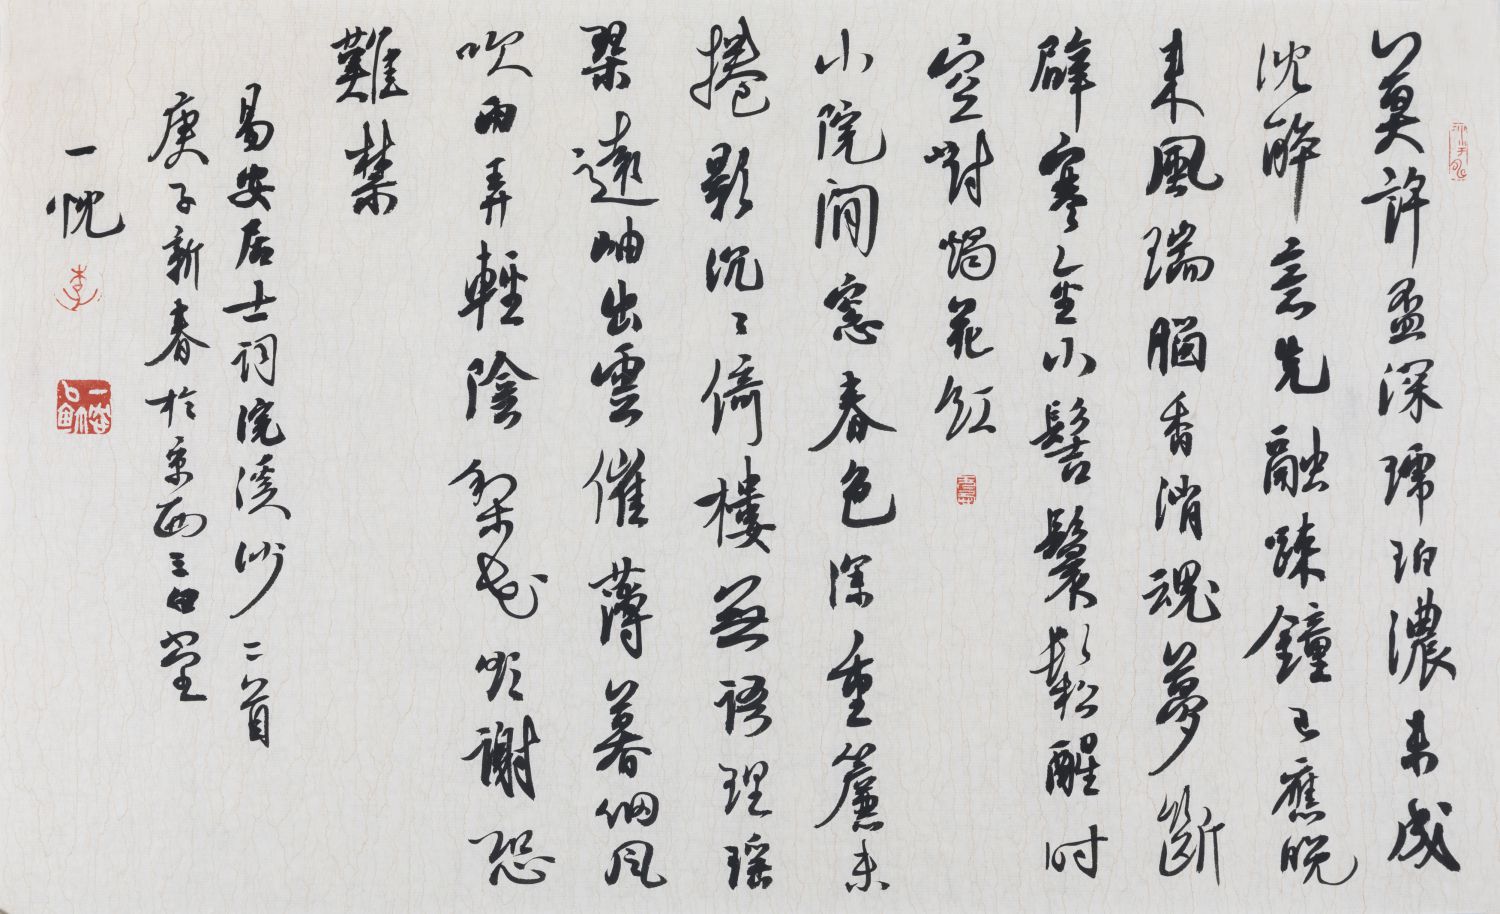 莫許盃深琥珀濃未成
沈醉意先融疎鐘已應晚
来風瑞腦香消魂夢斷
辟寒金小髻鬟鬆醒时
空對燭花紅
小院閒窻春色深重簾未
捲影沉〻倚樓無語理瑶
琴遠岫出雲催薄暮细風
吹雨弄輕陰梨花欲謝恐
難禁
易安居士詞浣溪沙二首
庚子新春於京西三堂
一忱
李